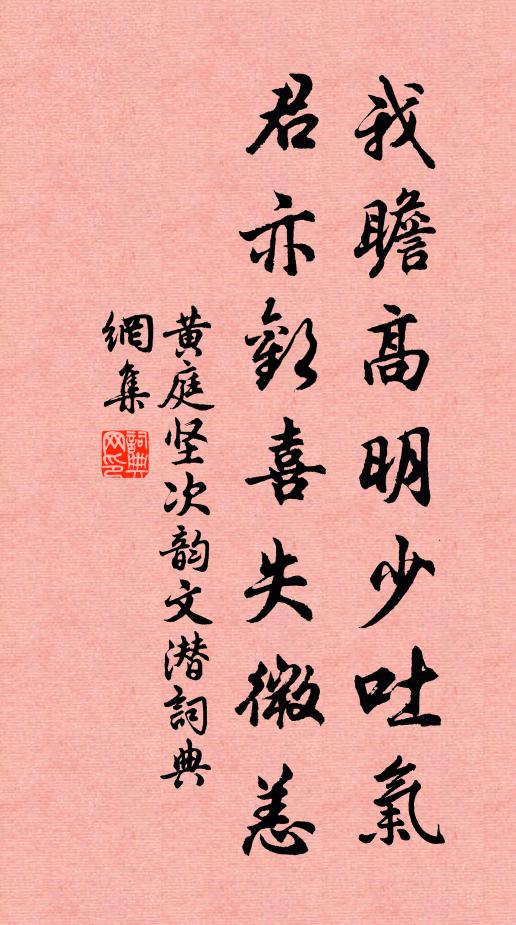 我瞻高明少吐氣
君亦歡喜失微恙
黄庭坚次韵文潜詞典
網集
詞典网印